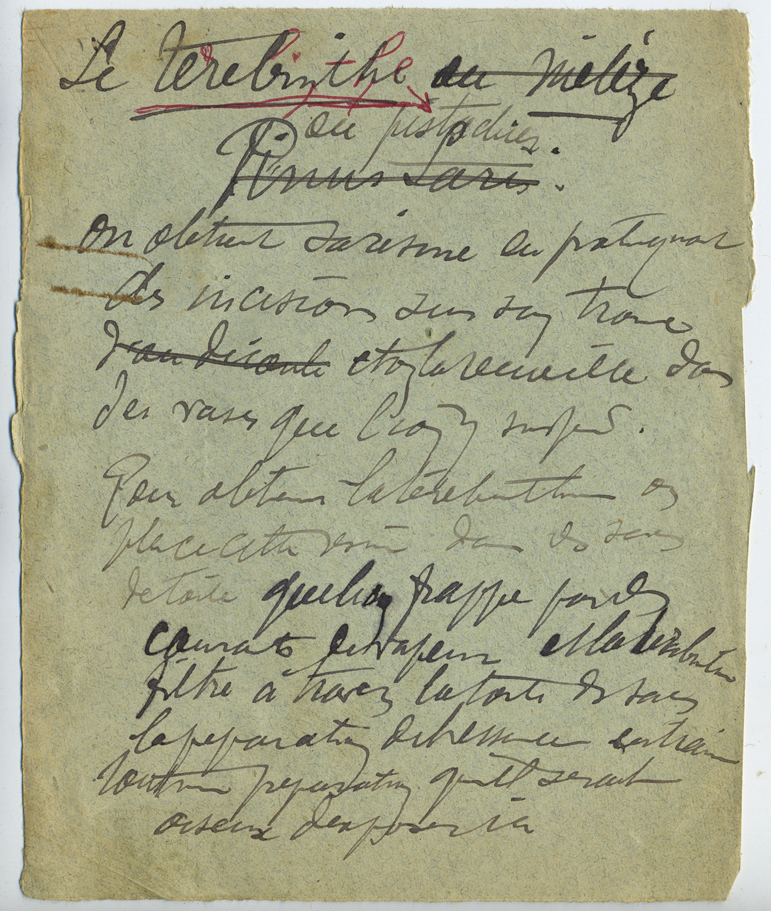 Le Térébinthe ou Mélèze
ou pistachier.
Pinus Laris.
on obtient sa résine en pratiquant
des incisions sur son tronc
d'où découle et on la recueille dans
des vases que l'on y suspend.
Pour obtenir la térébenthine on
place cette résine dans des sacs
de toile que l'on frappe par des
courants de vapeur et la térébenthine
filtre à travers la toile des sacs
la préparation de l'essence entraîne
toute une préparation qu'il serait
oiseux d'exposer ici